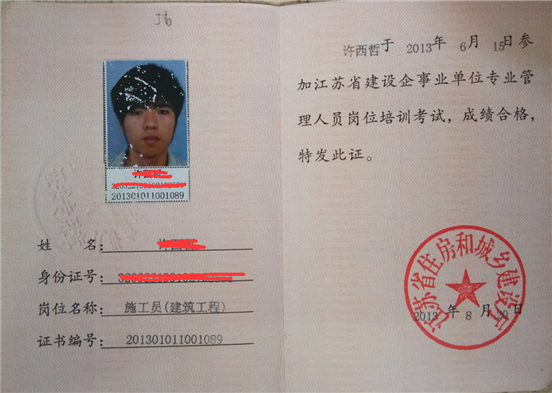 J6
201301011001089
姓 名:
身份证号:
岗位名称: 施工员(建筑工程)
证书编号: 201301011001089
许西哲于 2013年 6月 15日参
加江苏省建设企事业单位专业管
理人员岗位培训考试，成绩合格，
特发此证。
江苏省住房和城乡建设厅
2013年 8月 20日